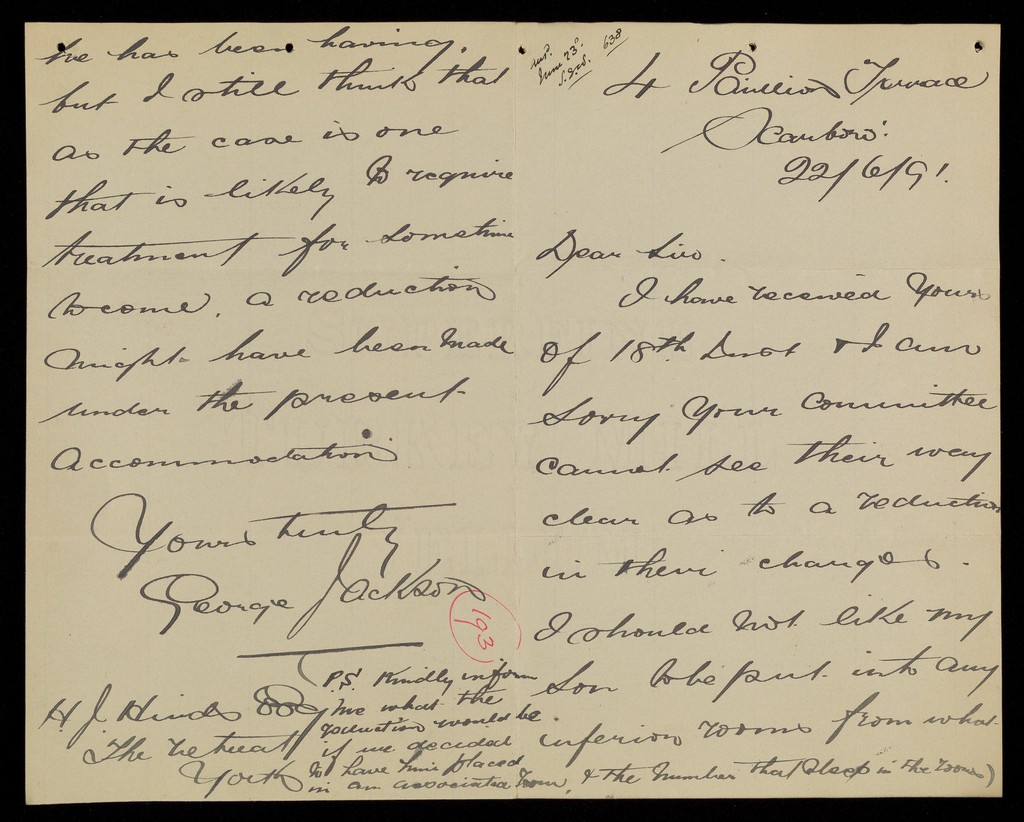 ansd.
June 23d.
638
4 Pavillion Terrace
Scarboro'.
22/6/91.
Dear Sir.
I have received Yours
of 18th Inst & I am
sorry Your Committee
cannot see their way
clear as to a reduction
in their charges.
I should not like my
son to be put into any
inferior rooms from what
he has been having,
but I still think that
as the case is one
that is likely to require
treatment for sometime
to come, a reduction
might have been made
under the present
Accommodation
Yours truly
George Jackson
193
H. J. Hinds Esq
The Retreat
York
P.S. Kindly inform
me what the
reduction would be
if we decided
to have him placed
in an associated room, & the number that sleep in the room)